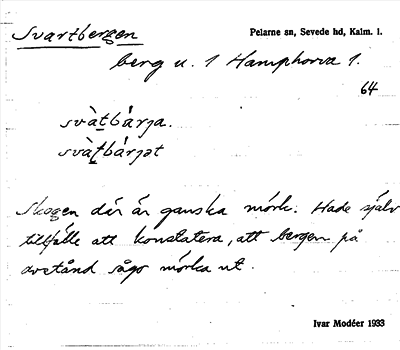 Svartbergen Pelarne sn, Sevede hd, Kalm. l.
berg u. 1 Hamphorva 1.
64
svàt̠bárja.
svàt̠bárjət
Skogen där är ganska mörk. Hade själv
tillfälle att konstatera, att bergen på
avstånd sågo mörka ut.
Ivar Modéer 1933